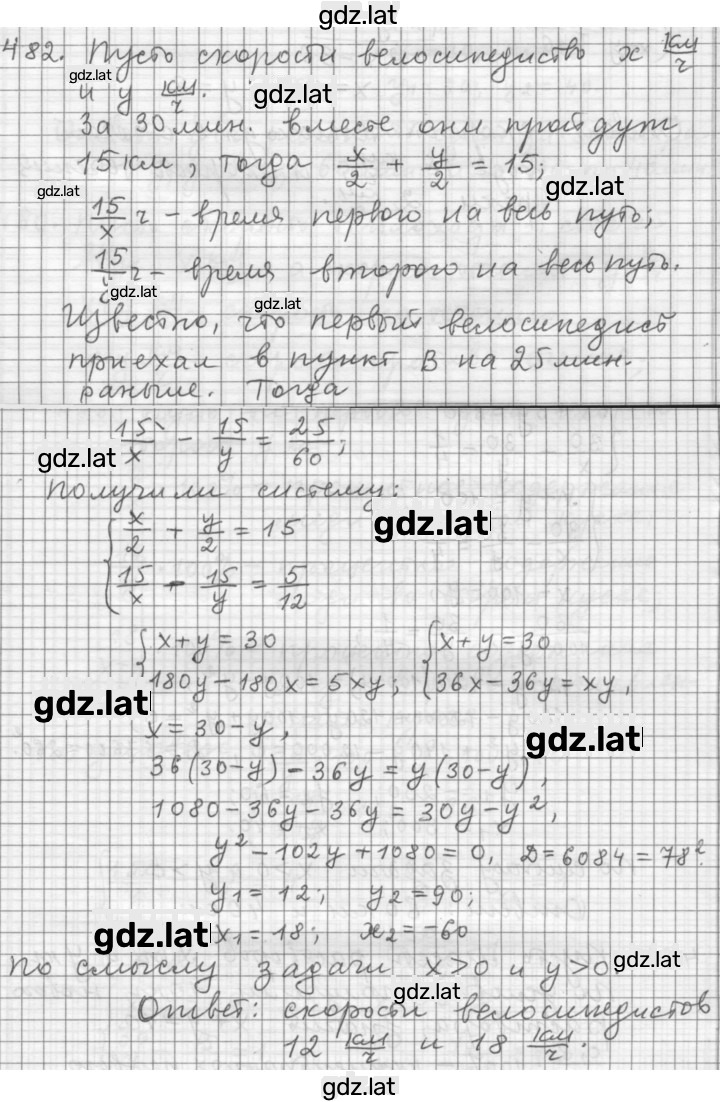 gdz.lat
482. Пусть скорости велосипедистов x км/ч
gdz.lat
и y км/ч.
gdz.lat
За 30 мин. вместе они пройдут
15 км, тогда x/2 + y/2 = 15;
gdz.lat
gdz.lat
15/x ч - время первого на весь путь;
15/y ч - время второго на весь путь.
gdz.lat
gdz.lat
Известно, что первый велосипедист
приехал в пункт В на 25 мин.
раньше. Тогда
15/x - 15/y = 25/60;
gdz.lat
Получили систему:
gdz.lat
{ x/2 + y/2 = 15
15/x - 15/y = 5/12
{ x+y=30 { x+y=30
180y-180x=5xy; 36x-36y=xy,
gdz.lat
x=30-y,
gdz.lat
36(30-y)-36y=y(30-y),
1080-36y-36y=30y-y²,
y²-102y+1080=0, D=6084=78².
y₁=12; y₂=90;
gdz.lat
x₁=18; x₂=-60
По смыслу задачи x>0 и y>0
gdz.lat
gdz.lat
Ответ: скорости велосипедистов
12 км/ч и 18 км/ч.
gdz.lat